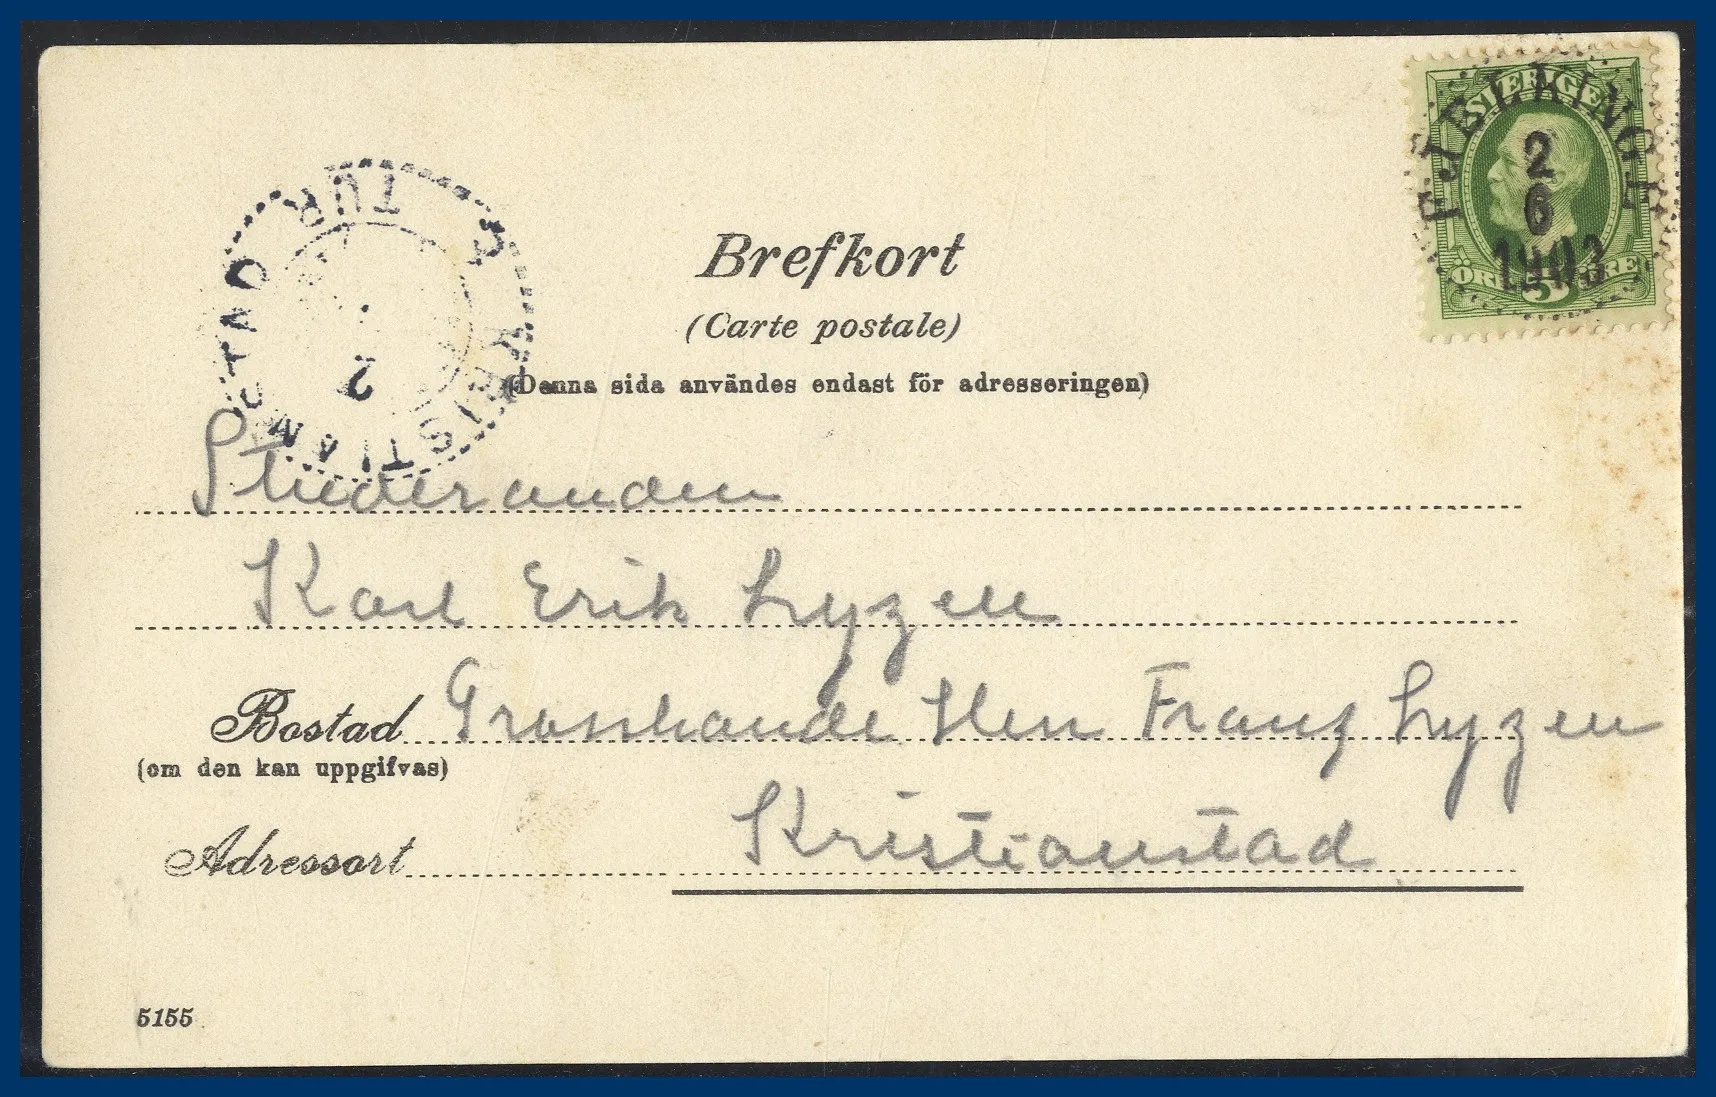 SVERIGE
FJELKINGE
2
6
1903
ÖRE 5 ÖRE
TUR
KRISTIANSTAD
2
Brefkort
(Carte postale)
(Denna sida användes endast för adresseringen)
Studeranden
Karl Erik Lyzell
Bostad Grosshandl Herr Franz Lyzell
(om den kan uppgifvas)
Kristianstad
Adressort
5155